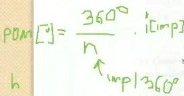 POM[°] = 360°/n · i[imp]
imp/360°
h